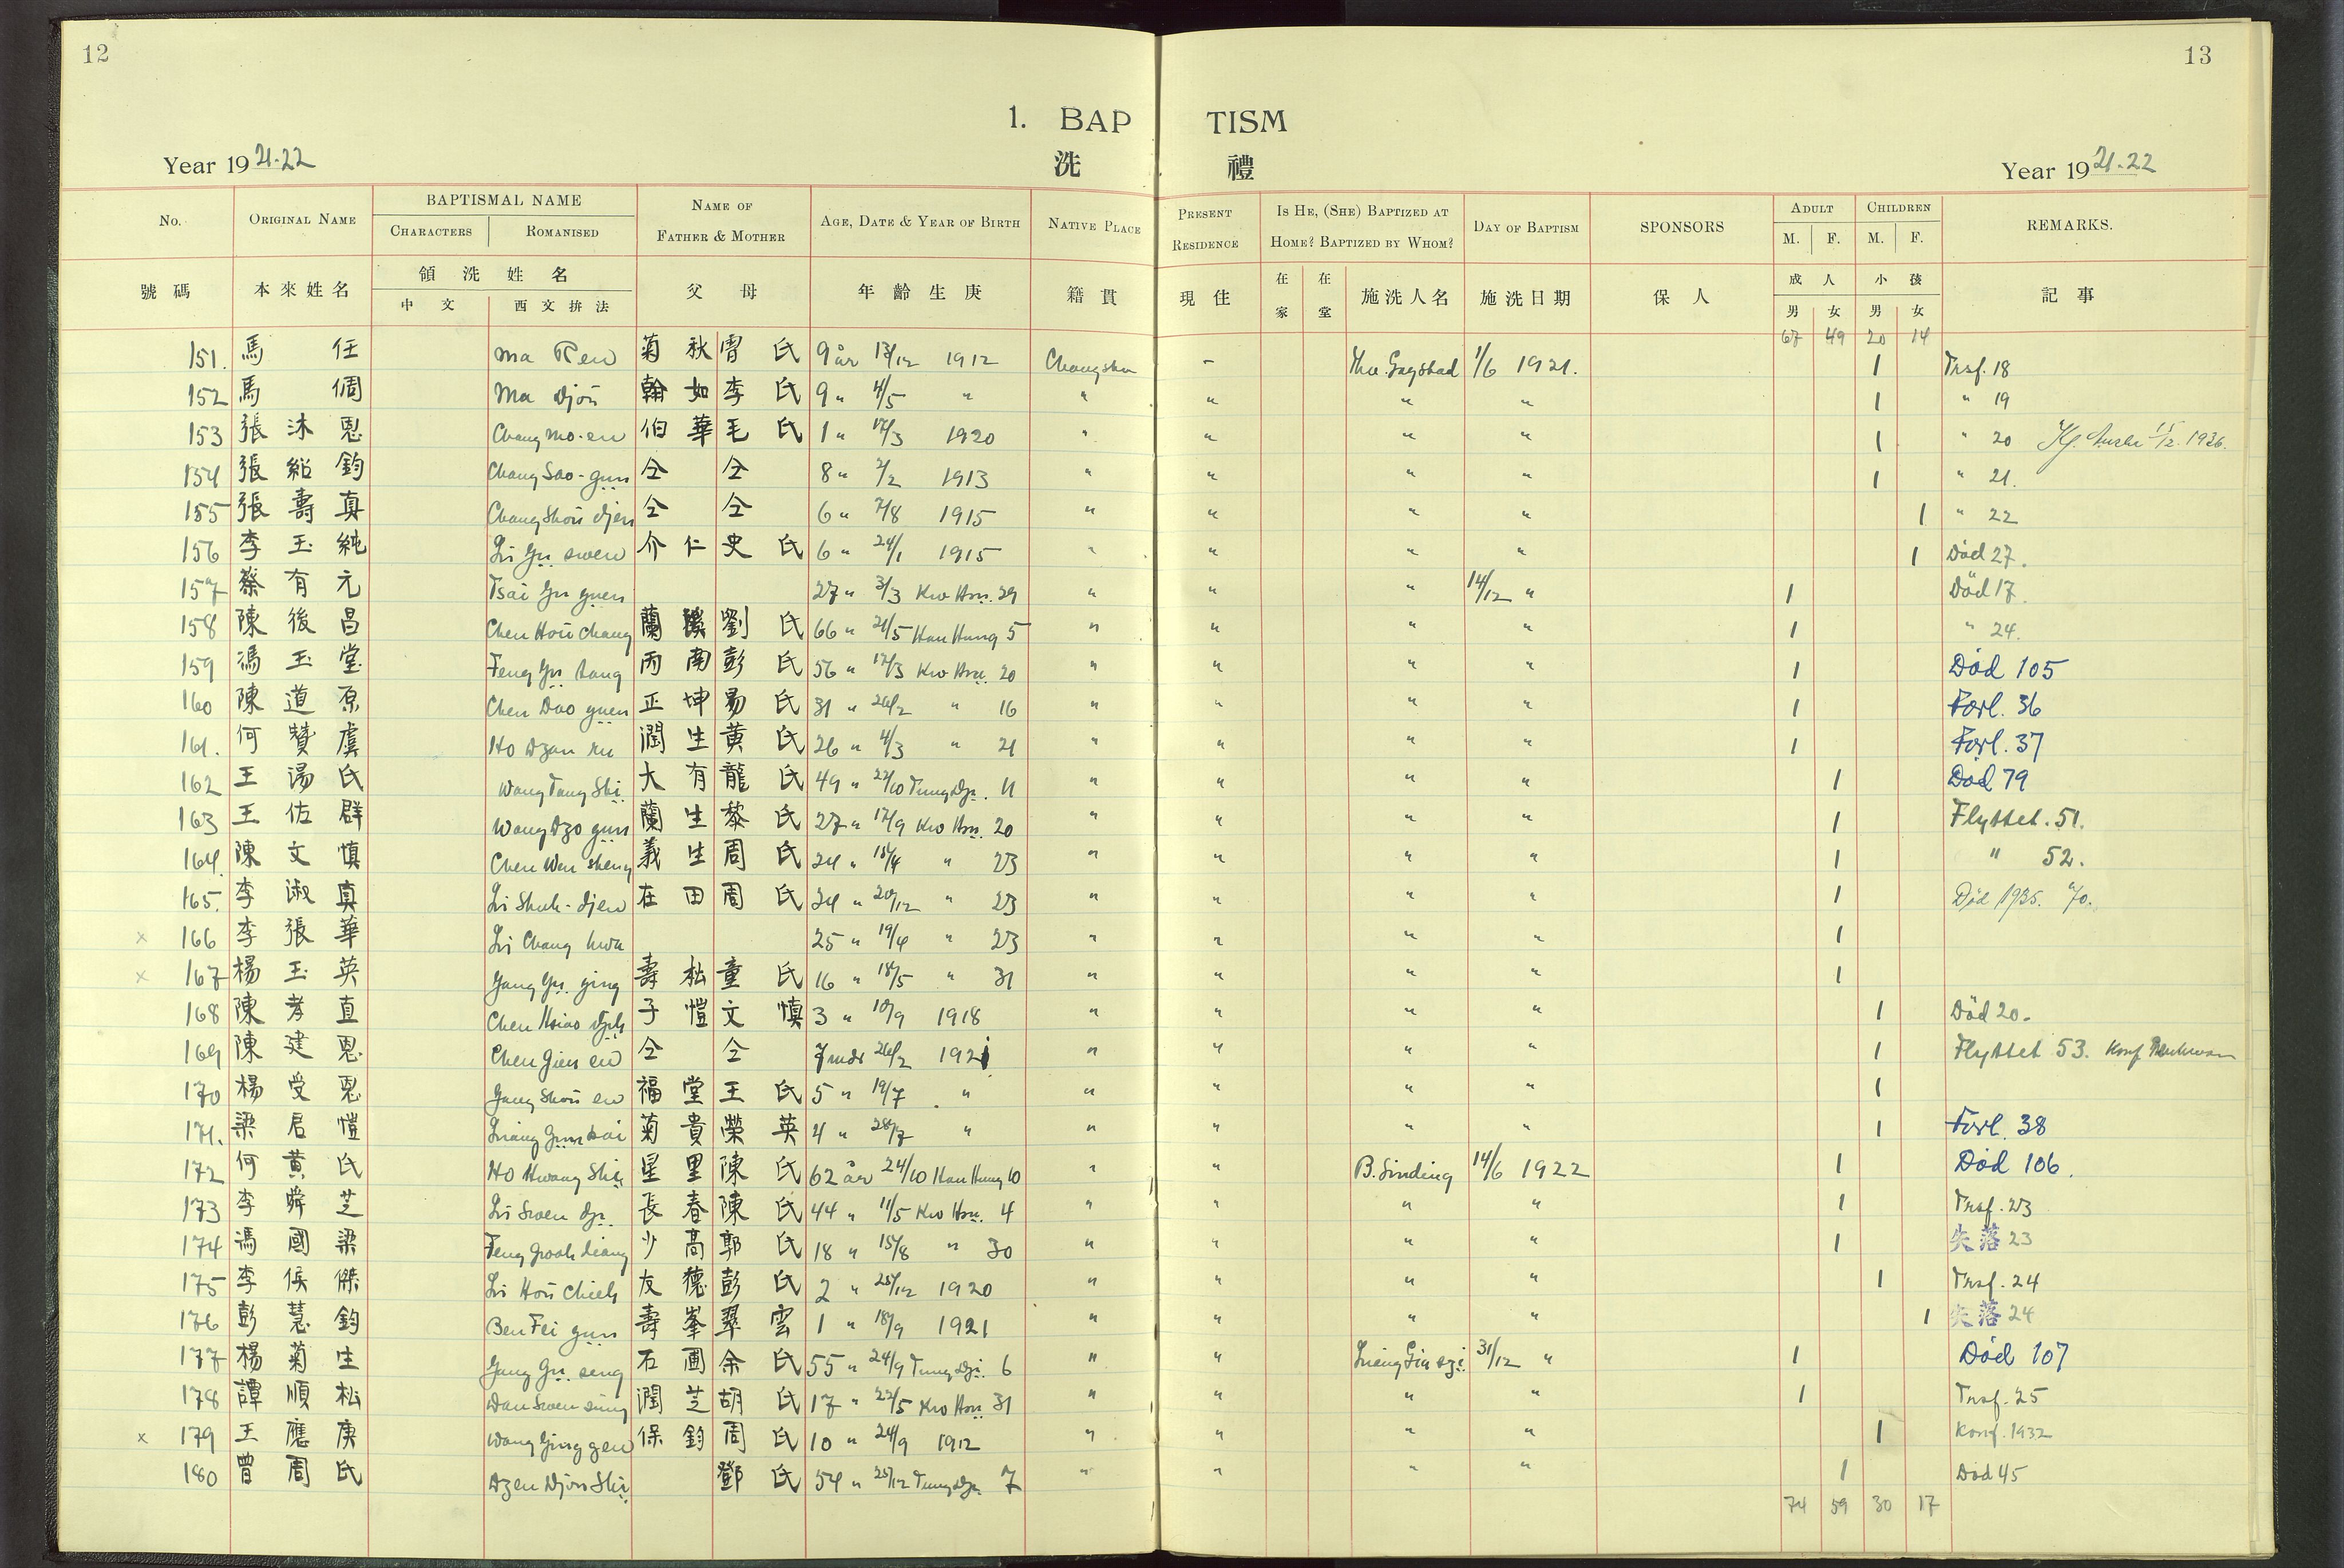 12
13
1. BAP TISM
洗 禮
Year 19 21-22
Year 19 21-22
No. ORIGINAL NAME BAPTISMAL NAME NAME OF FATHER & MOTHER AGE, DATE & YEAR OF BIRTH NATIVE PLACE PRESENT RESIDENCE IS HE, (SHE) BAPTIZED AT HOME? BAPTIZED BY WHOM? DAY OF BAPTISM SPONSORS ADULT CHILDREN REMARKS.
CHARACTERS ROMANISED M. F. M. F.
號碼 本來姓名 領洗姓名 父母 年齡生庚 籍貫 現住 在家 在堂 施洗人名 施洗日期 保人 成人 小孩 記事
中文 西文拚法 男 女 男 女
67 49 20 14
151. 馬 任 Ma Ren 菊秋 氏 9 år 13/12 1912 Changsha - Tho. Gogstad 1/6 1921. 1 Trsf. 18
152 馬 倜 Ma Djou 翰如 李氏 9 " 4/5 " " " " " 1 " 19
153 張沐恩 Chang Mo-en 伯華 毛氏 1 " 12/3 1920 " " " " 1 " 20 15/12. 1936.
154 張紹鈞 Chang Sao-gun 仝 仝 8 " 2/2 1913 " " " " 1 " 21.
155 張壽真 Chang Shou djen 仝 仝 6 " 7/8 1915 " " " " 1 " 22
156 李玉純 Li Yu swen 介仁 史氏 6 " 24/1 1915 " " " " 1 Död 27.
157 蔡有元 Tsai Yu yuen 27 " 3/3 Kwo Hsu. 29 " " " 14/12 " 1 Död 17.
158 陳後昌 Chen Hou Chang 蘭 劉氏 66 " 21/5 Han Hung 5 " " " " 1 " 24.
159 馮玉堂 Feng Yu tang 丙南 彭氏 56 " 12/3 Kwo Hsu. 20 " " " " 1 Död 105
160 陳道原 Chen Dao yuen 正坤 易氏 31 " 26/2 " 16 " " " " 1 Forl. 36
161. 何贊虞 Ho Dzan yu 潤生 黃氏 26 " 4/3 " 21 " " " " 1 Forl. 37
162 王湯氏 Wang Tang Shi 大有 龍氏 49 " 22/10 Tung Dji. 11 " " " " 1 Död 79
163 王佐群 Wang Dzo gun 蘭生 黎氏 27 " 12/9 Kwo Hsu. 20 " " " " 1 Flyttet. 51.
164. 陳文慎 Chen Wen sheng 義生 周氏 24 " 18/4 " 23 " " " " 1 " 52.
165. 李淑真 Li Shuh-djen 在田 周氏 24 " 20/12 " 23 " " " " 1 Död 1935.
x 166 李張華 Li Chang hwa 25 " 19/4 " 23 " " " " 1
x 167 楊玉英 Yang Yu ying 壽松 童氏 16 " 18/5 " 31 " " " " 1
168 陳孝直 Chen Hsiao djih 子愷 文慎 3 " 10/9 1918 " " " " 1 Död 20.
169 陳建恩 Chen Gien en 仝 仝 7 mdr 26/2 1921 " " " " 1 Flyttet 53. Konf.
170 楊受恩 Yang Shou en 福堂 王氏 5 " 19/7 " " " " " 1
171. 梁君愷 Liang Gun kai 菊貴 榮英 4 " 28/7 " " " " " 1 Forl. 38
172 何黃氏 Ho Hwang Shi 星里 陳氏 62 år 24/10 Han Hung 10 " " B. Sinding 14/6 1922 1 Död 106.
173 李舜芝 Li Swen dji 長春 陳氏 44 " 11/5 Kwo Hsu. 4 " " " " 1 Trsf. 23
174 馮國梁 Feng Gwoh liang 少髙 郭氏 18 " 15/8 " 30 " " " " 1 失落 23
175 李侯傑 Li Hou Chieh 友德 彭氏 2 " 25/12 1920 " " " " 1 Trsf. 24
176 彭慧鈞 Ben Fei gun 壽峯 翠雲 1 " 18/9 1921 " " " " 1 失落 24
177 楊菊生 Yang Gu seng 石圃 余氏 55 " 24/9 Tung Dji. 6 " " Liang Gia szi 31/12 " 1 Död 107
178 譚順松 Dan Swen sung 潤芝 胡氏 17 " 22/5 Kwo Hsu 31 " " " " 1 Trsf. 25
x 179 王應庚 Wang Ying gen 保鈞 周氏 10 " 24/9 1912 " " " " 1 Konf. 1932
180 曾周氏 Dzen Djou Shi 鄧氏 54 " 25/12 Tung Dji 7 " " " " 1 Död 45
74 59 30 17